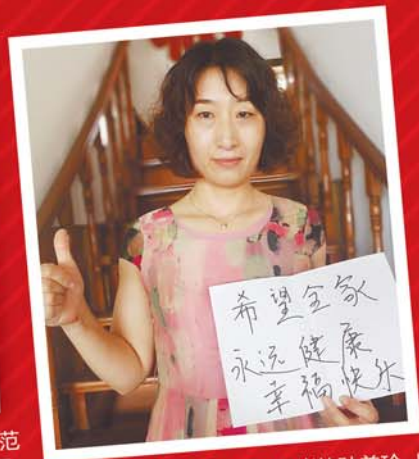 希望全家
永远健康
幸福快乐
范